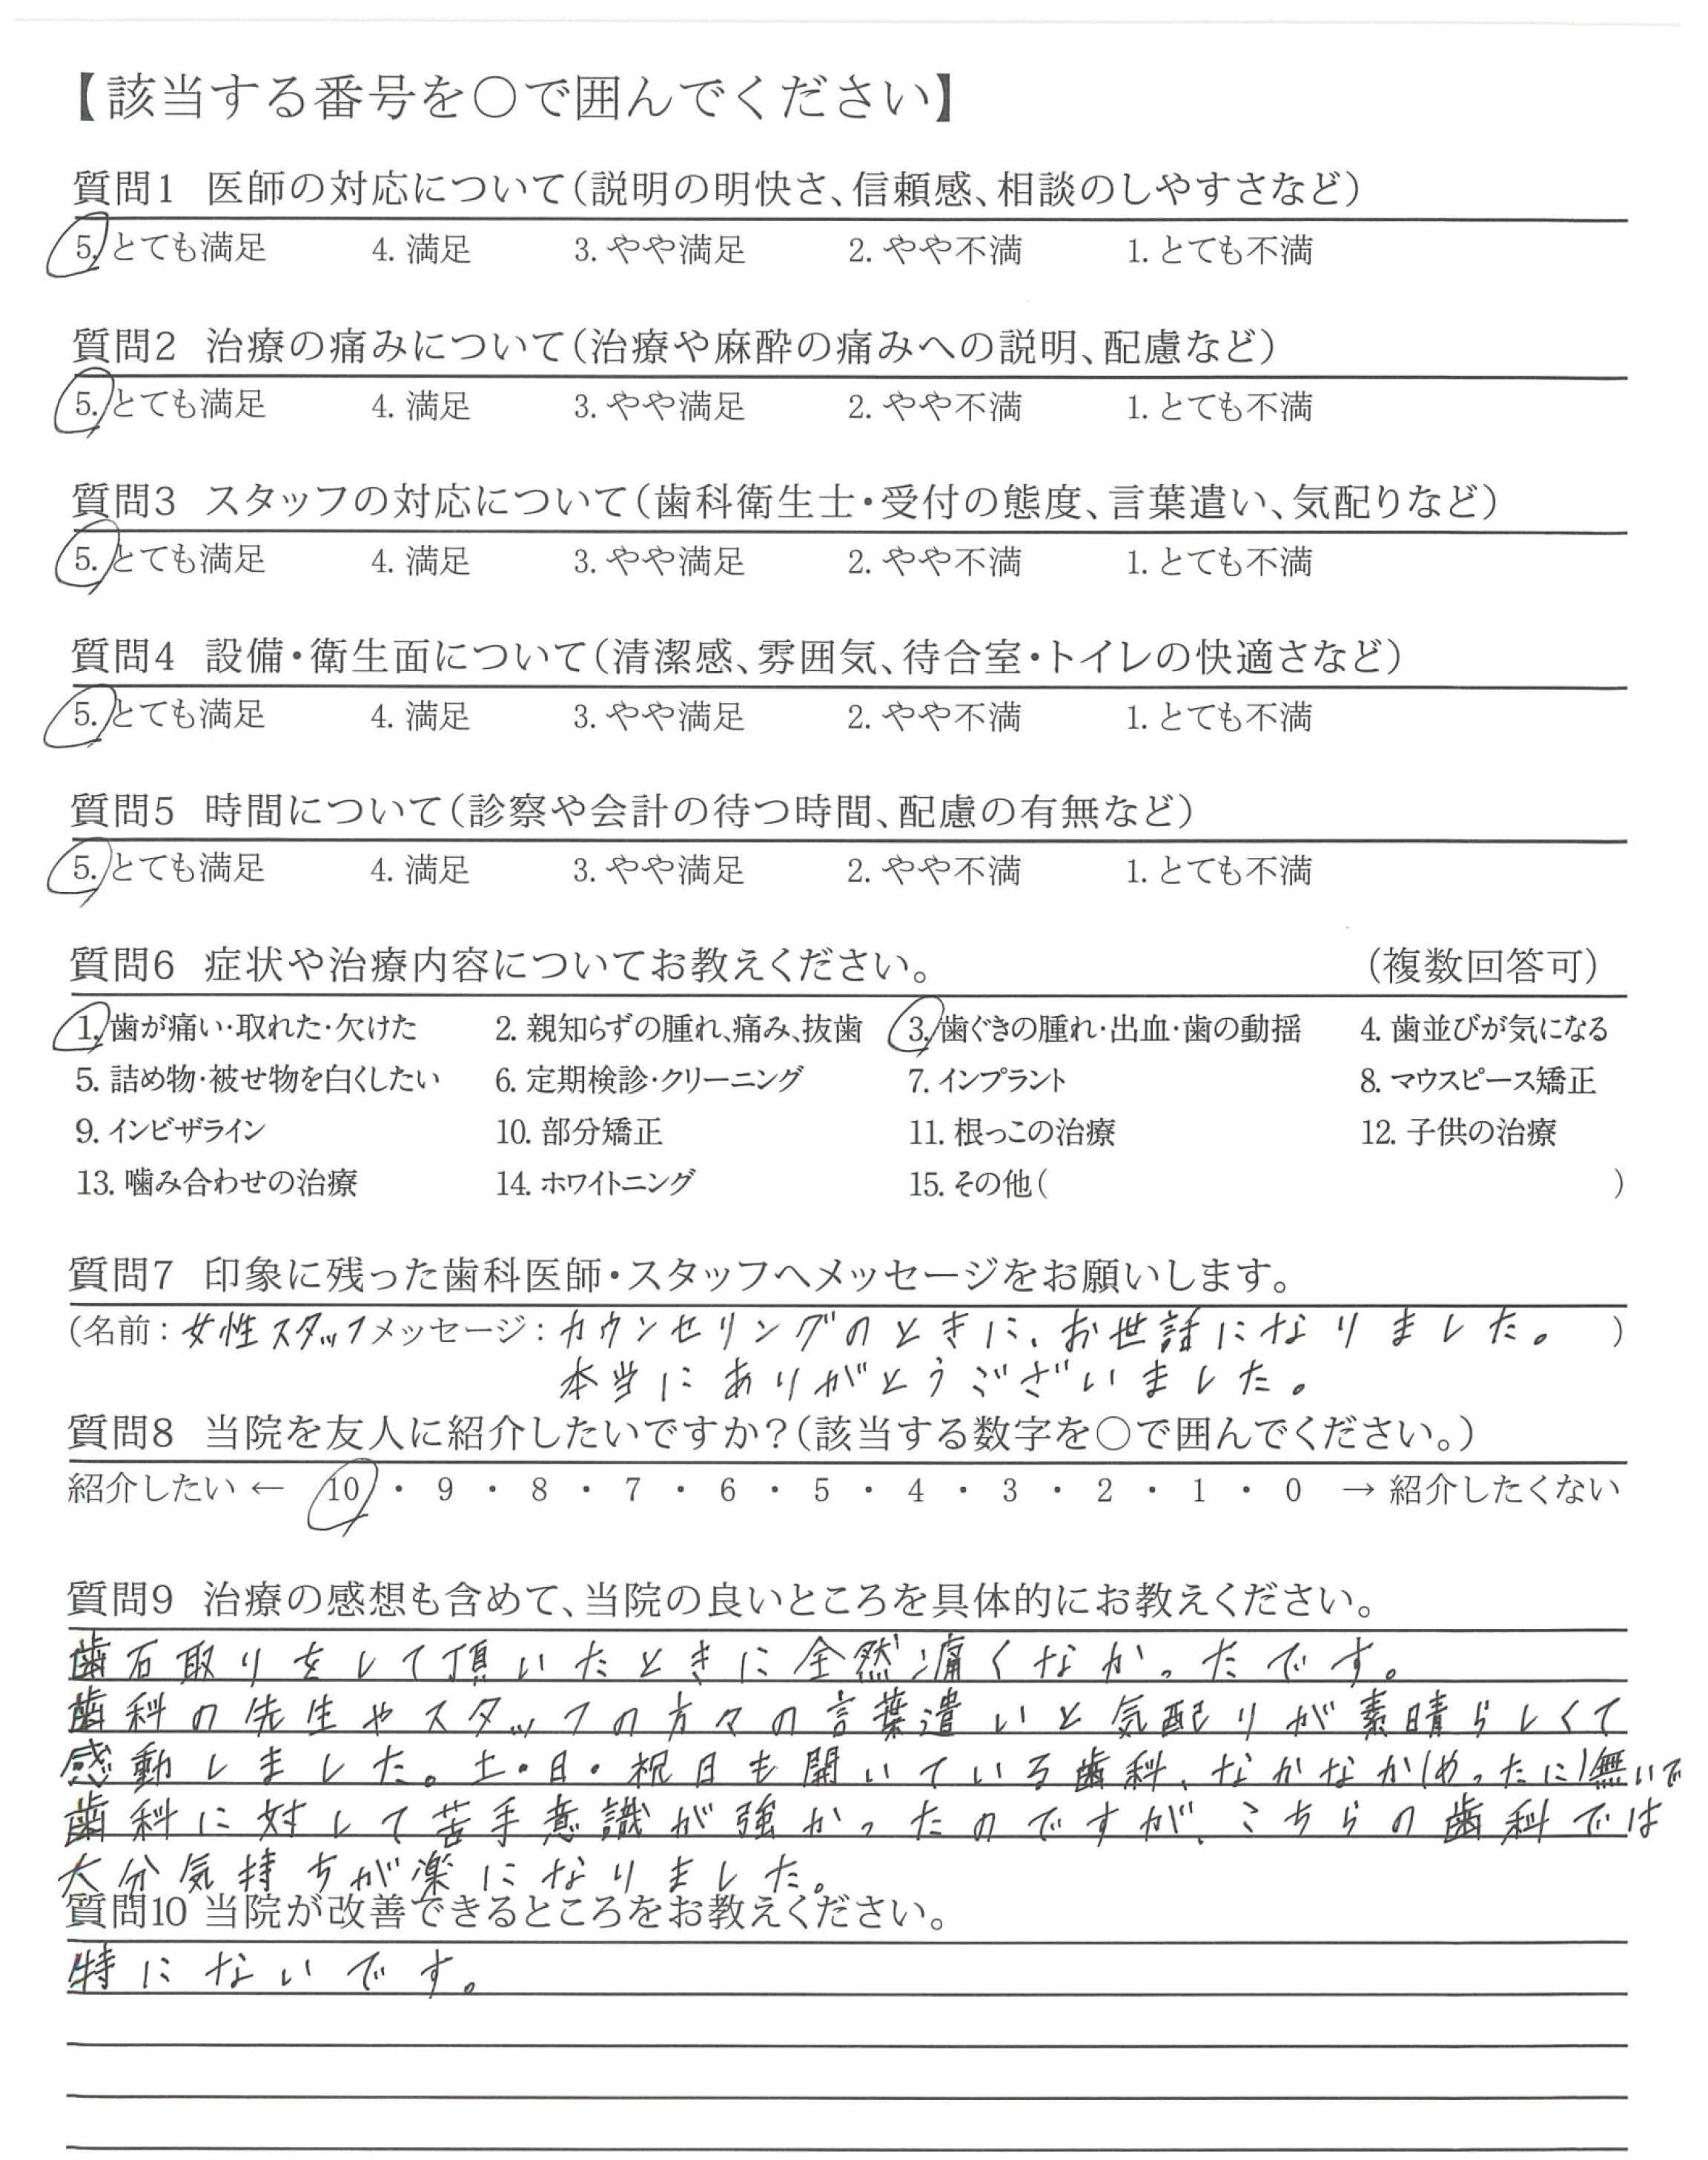 【該当する番号を○で囲んでください】
質問1 医師の対応について(説明の明快さ、信頼感、相談のしやすさなど)
5. とても満足 4. 満足 3. やや満足 2. やや不満 1. とても不満
質問2 治療の痛みについて(治療や麻酔の痛みへの説明、配慮など)
5. とても満足 4. 満足 3. やや満足 2. やや不満 1. とても不満
質問3 スタッフの対応について(歯科衛生士・受付の態度、言葉遣い、気配りなど)
5. とても満足 4. 満足 3. やや満足 2. やや不満 1. とても不満
質問4 設備・衛生面について(清潔感、雰囲気、待合室・トイレの快適さなど)
5. とても満足 4. 満足 3. やや満足 2. やや不満 1. とても不満
質問5 時間について(診察や会計の待つ時間、配慮の有無など)
5. とても満足 4. 満足 3. やや満足 2. やや不満 1. とても不満
質問6 症状や治療内容についてお教えください。 (複数回答可)
1. 歯が痛い・取れた・欠けた 2. 親知らずの腫れ、痛み、抜歯 3. 歯ぐきの腫れ・出血・歯の動揺 4. 歯並びが気になる
5. 詰め物・被せ物を白くしたい 6. 定期検診・クリーニング 7. インプラント 8. マウスピース矯正
9. インビザライン 10. 部分矯正 11. 根っこの治療 12. 子供の治療
13. 噛み合わせの治療 14. ホワイトニング 15. その他( )
質問7 印象に残った歯科医師・スタッフへメッセージをお願いします。
(名前:女性スタッフ メッセージ:カウンセリングのときに、お世話になりました。 )
本当にありがとうございました。
質問8 当院を友人に紹介したいですか?(該当する数字を○で囲んでください。)
紹介したい ← 10 ・ 9 ・ 8 ・ 7 ・ 6 ・ 5 ・ 4 ・ 3 ・ 2 ・ 1 ・ 0 → 紹介したくない
質問9 治療の感想も含めて、当院の良いところを具体的にお教えください。
歯石取りをして頂いたときに全然痛くなかったです。
歯科の先生やスタッフの方々の言葉遣いと気配りが素晴らしくて
感動しました。土・日・祝日も開いている歯科、なかなか(めったに)無いで
歯科に対して苦手意識が強かったのですが、こちらの歯科では
大分気持ちが楽になりました。
質問10 当院が改善できるところをお教えください。
特にないです。